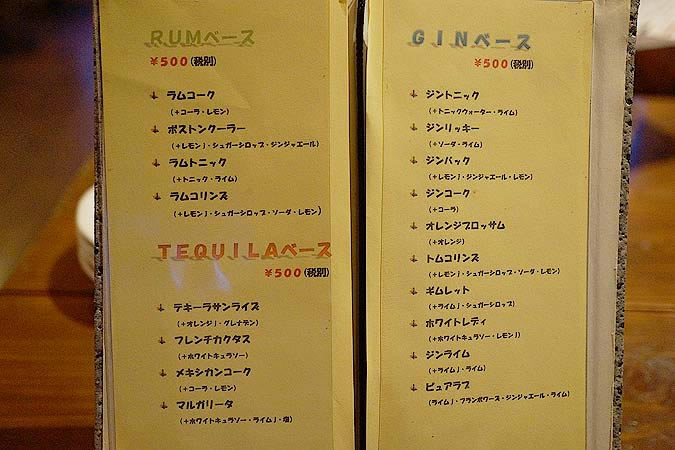 RUMベース
¥500(税別)
ラムコーク
(+コーラ・レモン)
ボストンクーラー
(+レモンJ・シュガーシロップ・ジンジャエール)
ラムトニック
(+トニック・ライム)
ラムコリンズ
(+レモンJ・シュガーシロップ・ソーダ・レモン)
TEQUILAベース
¥500(税別)
テキーラサンライズ
(+オレンジJ・グレナデン)
フレンチカクタス
(+ホワイトキュラソー)
メキシカンコーク
(+コーラ・レモン)
マルガリータ
(+ホワイトキュラソー・ライムJ・塩)
GINベース
¥500(税別)
ジントニック
(+トニックウォーター・ライム)
ジンリッキー
(+ソーダ・ライム)
ジンバック
(+レモンJ・ジンジャエール・レモン)
ジンコーク
(+コーラ)
オレンジブロッサム
(+オレンジ)
トムコリンズ
(+レモンJ・シュガーシロップ・ソーダ・レモン)
ギムレット
(+ライムJ・シュガーシロップ)
ホワイトレディ
(+ホワイトキュラソー・レモンJ)
ジンライム
(+ライムJ・ライム)
ピュアラブ
(ライムJ・フランボワーズ・ジンジャエール・ライム)